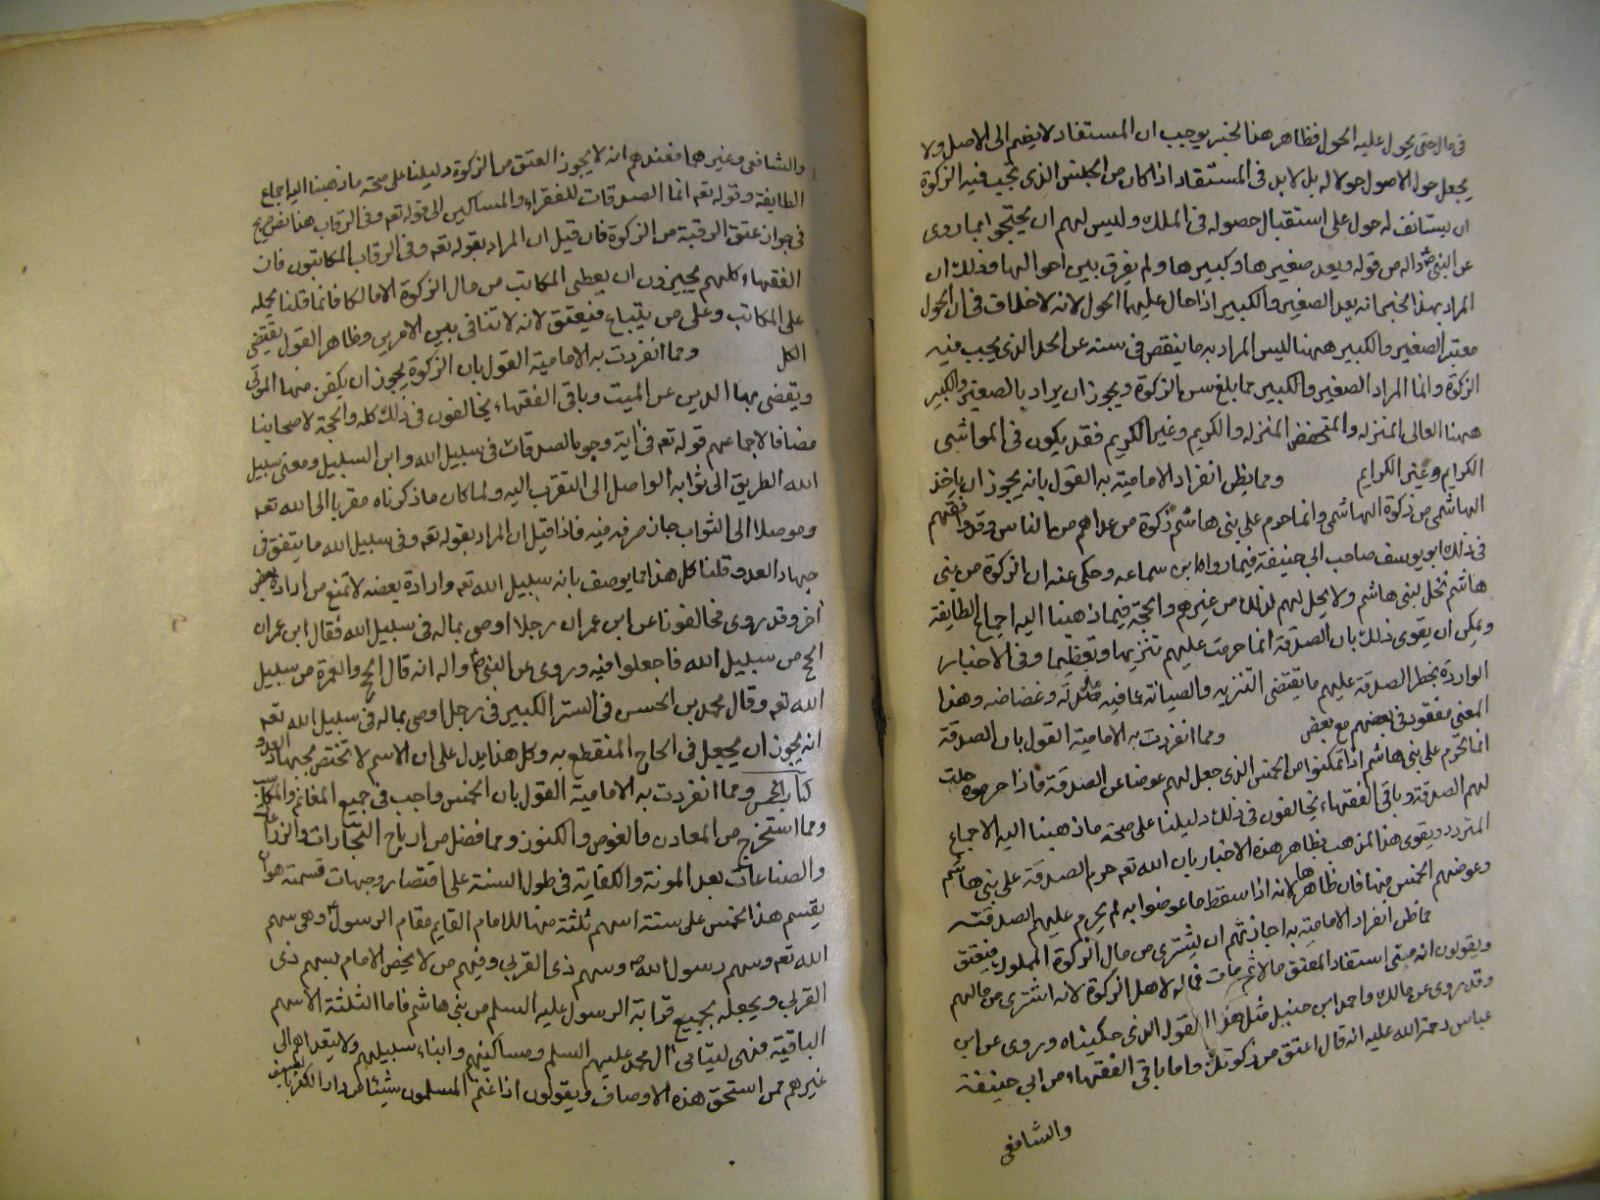 في مال حتى يحول عليه الحول فظاهر هذا الخبر يوجب ان المستفاد لا يضم الى الاصل ولا
يجعل حول الاصول حولا له بل لا بد في المستفاد اذا كان من الجنس الذى تجب فيه الزكوة
ان يستانف له حول على استقبال حصوله في الملك وليس لهم ان يحتجوا بما روى
عن النبى واله من قوله ويعد صغيرها وكبيرها ولم يفرق بين احوالها وذلك ان
المراد بهذا الخبر انه يعد الصغير والكبير اذا حال عليهما الحول لانه لا خلاف في ان الحول
معتبر الصغير والكبير ههنا ليس المراد به ما ينقص في سنه عن الحد الذى يجب فيه
الزكوة وانما المراد الصغير والكبير مما بلغ سن الزكوة ويجوز ان يراد بالصغير والكبير
ههنا العالى المنزله والمنخفض المنزله والكريم وغير الكريم فقد يكون في المواشى
الكرايم وغير الكرايم ومما يظن انفراد الامامية به القول بانه يجوز ان ياخذ
الهاشمى من زكوة الهاشمى وانما حرم على بنى هاشم زكوة من عداهم من الناس وقد وافقهم
في ذلك ابو يوسف صاحب ابى حنيفة فيما رواه ابن سماعه وحكى عنه ان الزكوة من بنى
هاشم تحل لبنى هاشم ولا يحل لهم ذلك من غيرهم والحجة فيما ذهبنا اليه اجماع الطايفة
ويمكن ان يقوى ذلك بان الصدقة انما حرمت عليهم تنزيها وتعظيما وفي الاخبار
الواردة بحظر الصدقة عليهم ما يقتضى التنزيه والصيانة عما فيه مذلة وغضاضه وهذا
المعنى مفقود في بعضهم مع بعض ومما انفردت به الامامية القول بان الصدقة
انما تحرم على بنى هاشم اذا تمكنوا من الخمس الذى جعل لهم عوضا عن الصدقة فاذا حرموه حلت
لهم الصدقة وباقى الفقهاء يخالفون في ذلك دليلنا على صحة ما ذهبنا اليه الاجماع
المتردد ويقوى هذا المذهب بظاهر هذه الاخبار بان الله تعه حرم الصدقة على بنى هاشم
وعوضهم الخمس منها فان ظاهرها لانه اذا سقط ما عوضوا به لم يحرم عليهم الصدقة
مما ظن انفراد الامامية به اجازتهم ان يشترى من مال الزكوة المملوك فيعتق
ويقولون انه متى استفاد المعتق مالا ثم مات فماله لاهل الزكوة لانه اشترى من مالهم
وقد روى عن مالك واحمد ابن حنبل مثل هذا القول الذى حكيناه وروى عن ابن
عباس رحمة الله عليه انه قال اعتق من زكوتك واما باقى الفقهاء من ابى حنيفة
والشافعى
والشافعى وغيرهما فعندهم انه لا يجوز العتق من الزكوة دليلنا على صحة ما ذهبنا اليه اجماع
الطايفة وقوله تعه انما الصدقات للفقراء والمساكين الى قوله تعه وفى الرقاب هذا نص صريح
في جواز عتق الرقبة من الزكوة فان قيل ان المراد بقوله تعه وفى الرقاب المكاتبون فان
الفقهاء كلهم يجيزون ان يعطى المكاتب من مال الزكوة الا مالكا فانما قلنا يحمله
على المكاتب وعلى من يبتاع فيعتق لانه لا تنافى بين الامرين وظاهر القول يقتضى
الكل ومما انفردت به الامامية القول بان الزكوة يجوز ان يكفن منها الموتى
ويقضى بها الدين عن الميت وباقى الفقهاء يخالفون في ذلك كله والحجة لاصحابنا
مضافا لاجماعهم قوله تعه في اية وجوه الصدقات في سبيل الله وابن السبيل ومعنى سبيل
الله الطريق الى ثوابه الواصل الى التقرب اليه ولما كان ما ذكرناه مقربا الى الله تعه
وموصلا الى الثواب جاز صرفه فيه فاذا قيل ان المراد بقوله تعه وفى سبيل الله ما ينفق في
جهاد العدو قلنا كل هذا مما يوصف بانه سبيل الله تعه وارادة بعضه لا تمنع من ارادة بعض
اخر وقد روى مخالفونا عن ابن عمر ان رجلا اوصى بماله في سبيل الله فقال ابن عمر ان
الحج من سبيل الله فاجعلوا فيه وروى عن النبى واله انه قال الحج والعمرة من سبيل
الله تعه وقال محمد بن الحسن في الستر الكبير في رجل اوصى بماله في سبيل الله تعه
انه يجوز ان يجعل في الحاج المنقطع به وكل هذا يدل على ان الاسم لا تختص بجهاد العدو
كتاب الخمس ومما انفردت به الامامية القول بان الخمس واجب في جميع المغانم والمكاسب
ومما استخرج من المعادن والغوص والكنوز ومما فضل من ارباح التجارات والزراعات
والصناعات بعد المونة والكفاية في طول السنة على اقتصار وجهات قسمته هو ان
يقسم هذا الخمس على ستة اسهم ثلثة منها للامام القايم مقام الرسول وهى سهم
الله تعه وسهم رسول الله وسهم ذى القربى وفيهم من لا يخص الامام بسهم ذى
القربى ويجعله بجميع قرابة الرسول عليه السلم من بنى هاشم فاما الثلثة الاسهم
الباقية فهى ليتامى ال محمد عليهم السلم ومساكينهم وابناء سبيلهم ولا يتعداهم الى
غيرهم ممن استحق هذه الاوصاف ويقولون اذا غنم المسلمون شيئا من دار الكفر بالسيف